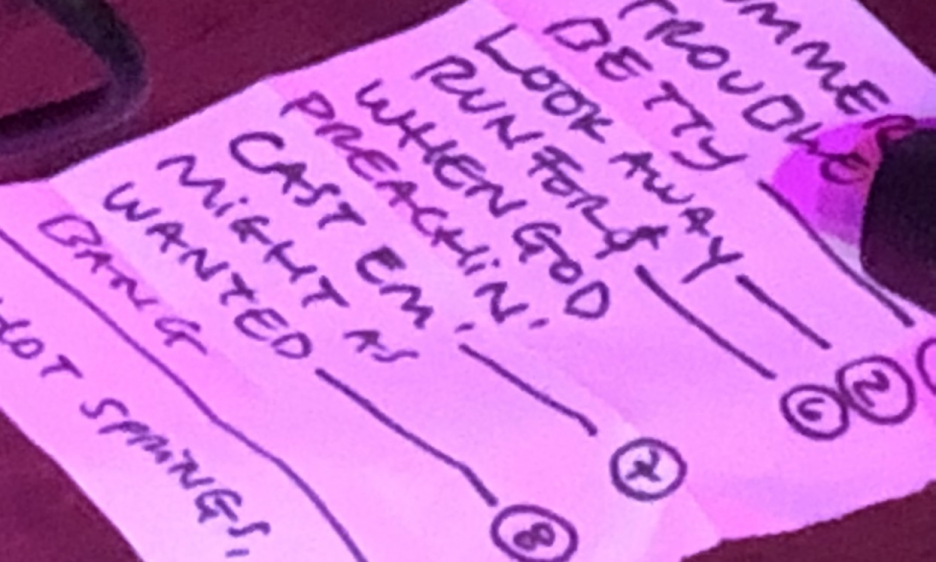 TROUBLE
BETTY
LOOK AWAY — ②
RUN FOR IT — ⑥
WHEN GOD
PREACHIN'.
CAST EM. — ⑦
MIGHT AS
WANTED — ⑧
BANG
HOT SPRINGS,